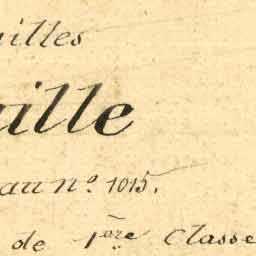 uilles
aille
eau nº 1015.
de 1ère Classe